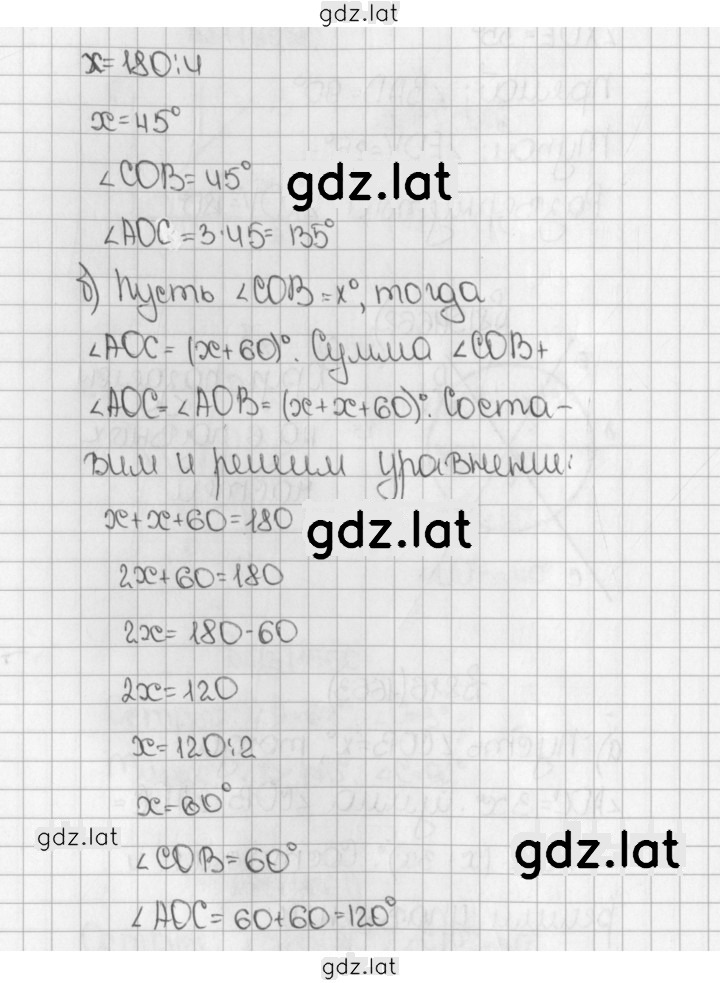 gdz.lat
x=180:4
x=45°
∠COB=45°
gdz.lat
∠AOC=3·45=135°
б) Пусть ∠COB=x°, тогда
∠AOC=(x+60)°. Сумма ∠COB+
∠AOC=∠AOB=(x+x+60)°. Соста-
вим и решим уравнение:
x+x+60=180
gdz.lat
2x+60=180
2x=180-60
2x=120
x=120:2
x=60°
gdz.lat
∠COB=60°
gdz.lat
∠AOC=60+60=120°
gdz.lat